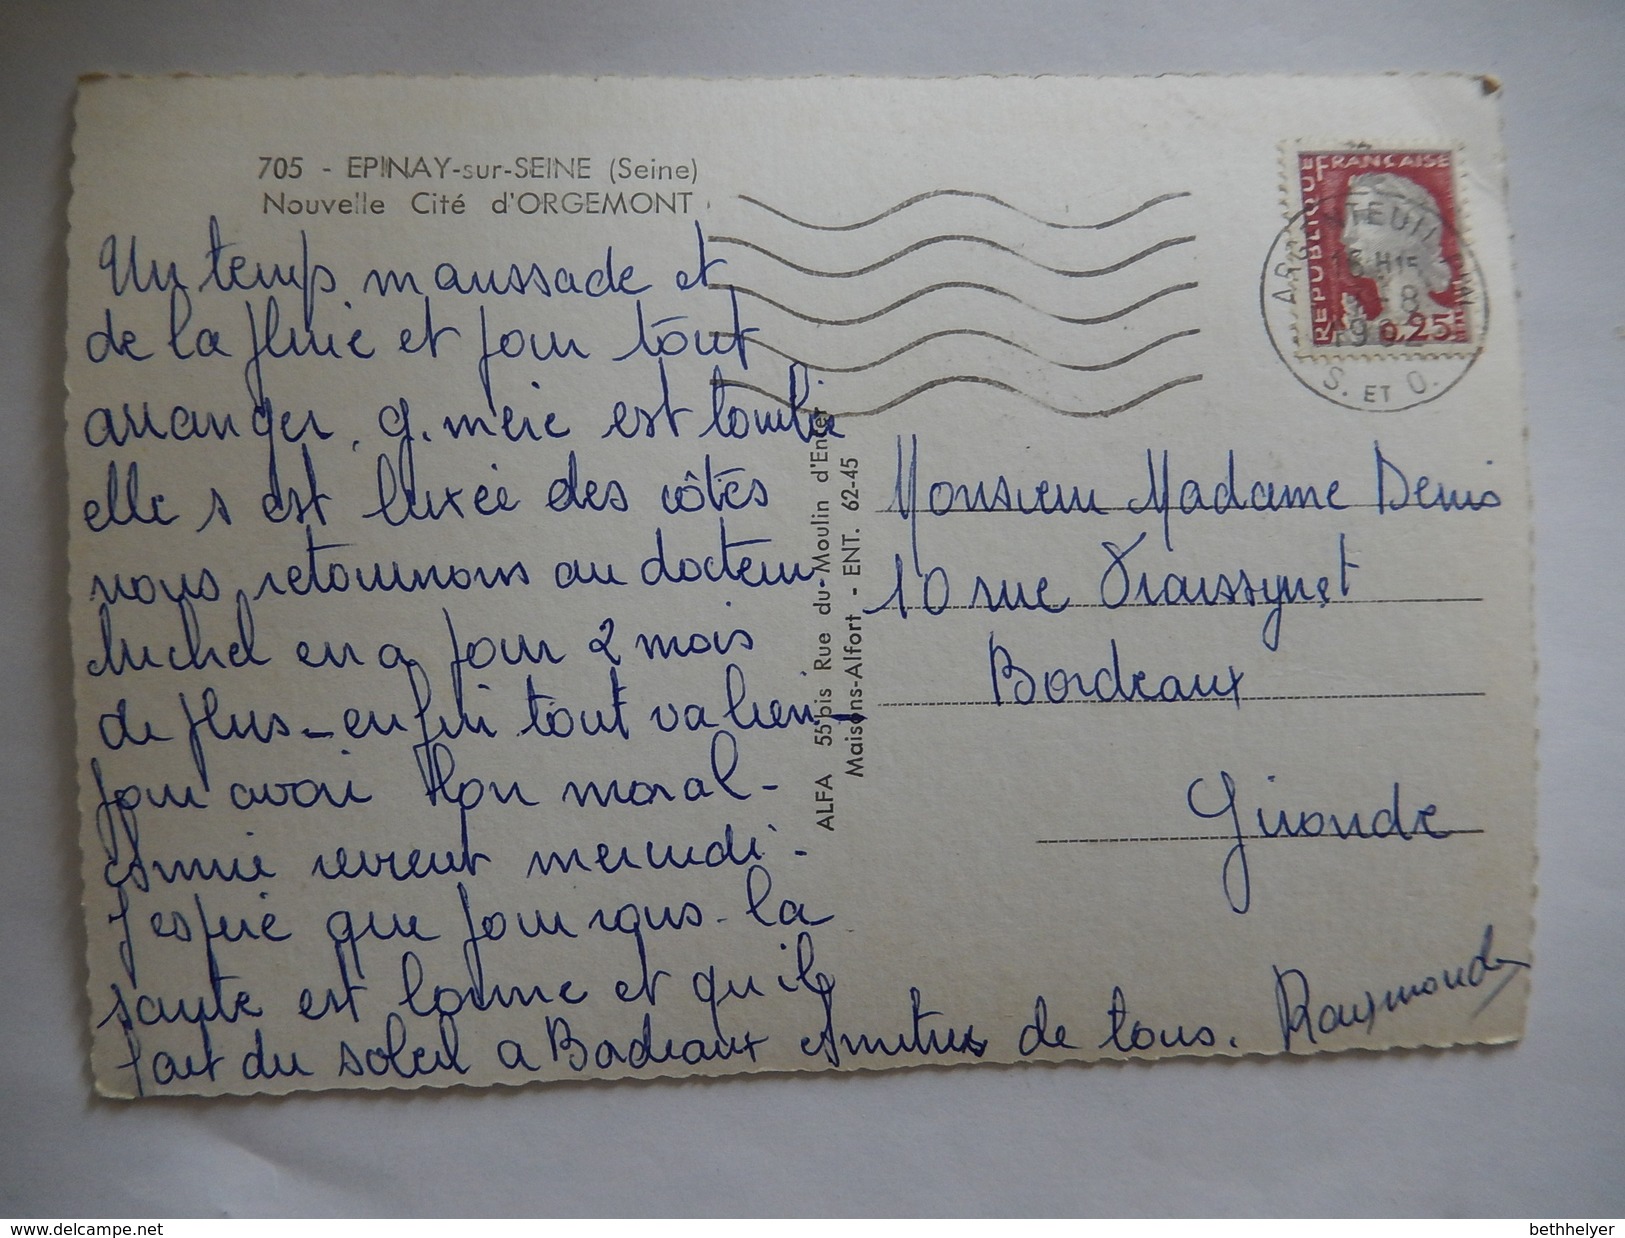 705 - EPINAY-sur-SEINE (Seine)
Nouvelle Cité d'ORGEMONT
Un temp maussade et
de la pluie et pour tout
arranger, g. mère est tombée
elle s est luxée des côtes
nous retournons au docteur
Michel en a pour 2 mois
de plus - enfin tout va bien -
pour avoir bon moral -
Annie revient mercredi -
J espère que pour vous - la
sante est bonne et qu il
fait du soleil a Bodeaux Amities de tous.
Raymonde
ALFA 55 bis Rue du Moulin d'Enfer
Maisons-Alfort - ENT. 62-45
REPUBLIQUE
FRANÇAISE
0,25
S. ET O.
Monsieur Madame Denis
10 rue
Bordeaux
Gironde
delcampe.net
bethhelyer